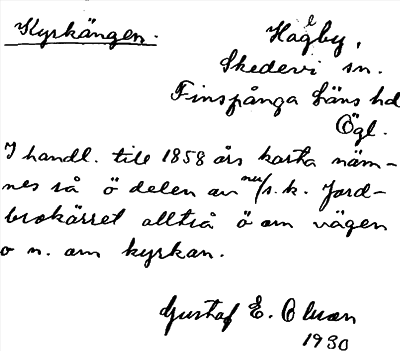 Kyrkängen.
Hagelby,
Skedevi sn.
Finspånga läns hd
Ögl.
I handl. till 1858 års karta näm-
nes så ö delen av nu/s.k. Jord-
brokärret alltså ö om vägen
o n. om kyrkan.
Gustaf E. Olsson
1930